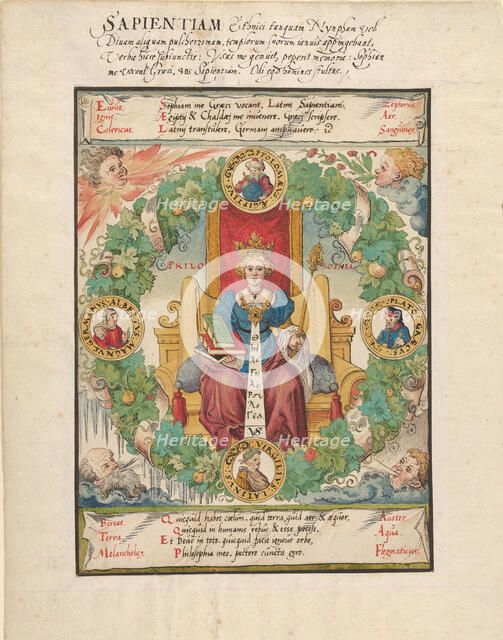 SAPIENTIAM Ethnici tanquam Nympham vel
Divam aliquam pulcherrimam, templorum suorum ianuis appingebant,
Verbis hisce subiunctis: Vsus me genuit, peperit memoria: Sophiam
me vocant Graeci, vos Sapientiam. Odi ego homines stultos.
Eurus,
Ignis,
Colericus.
Sophiam me Graeci vocant, Latini Sapientiam,
Ægyptij & Chaldaej me invenere, Graeci scripsere.
Latinj transtulere, Germanj ampliavere:
Zephirus.
Aer.
Sanguineus.
PTOLOMAEUS
PHILO
SOPHIA
ALBERTUS MAGNUS GERMANUS
PLATO
VIRGILIUS LATINUS
VS
Heritage
Heritage
Heritage
Heritage
Heritage
Heritage
Boreas.
Terra.
Melancholicus.
Quicquid habet coelum, quid terra, quid aer & aequor,
Quicquid in humanis rebus & esse potest,
Et Deus in toto quicquid facit igneus orbe,
Philosophia meo pectore cuncta gero.
Auster.
Aqua.
Flegmaticus.